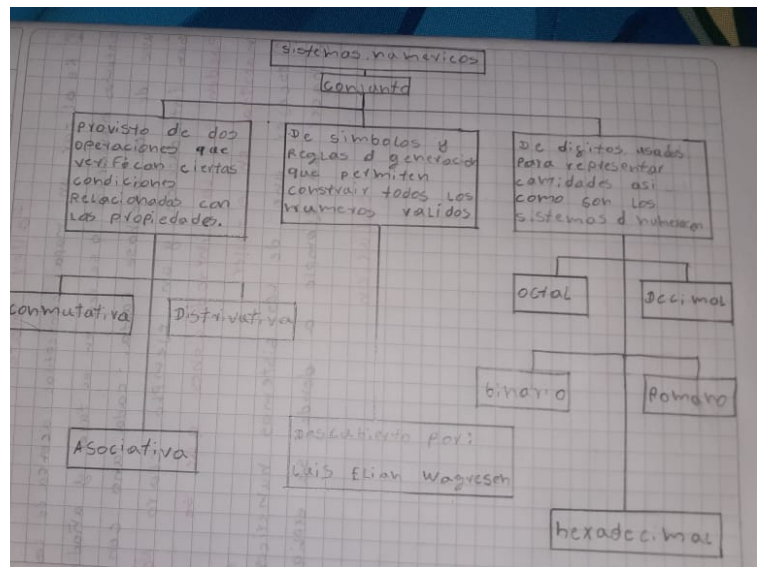 sistemas numericos
conjunto
provisto de dos
operaciones que
verifican ciertas
condiciones
Relacionadas con
Las propiedades.
De simbolos y
Reglas d generacion
que permiten
construir todos Los
numeros validos
De digitos usados
Para representar
cantidades asi
como son los
sistemas d numeracion
conmutativa
Distrivutiva
Asociativa
Descubierto por:
Luis Elian Wagresen
octal
Decimal
binario
Romano
hexadecimal